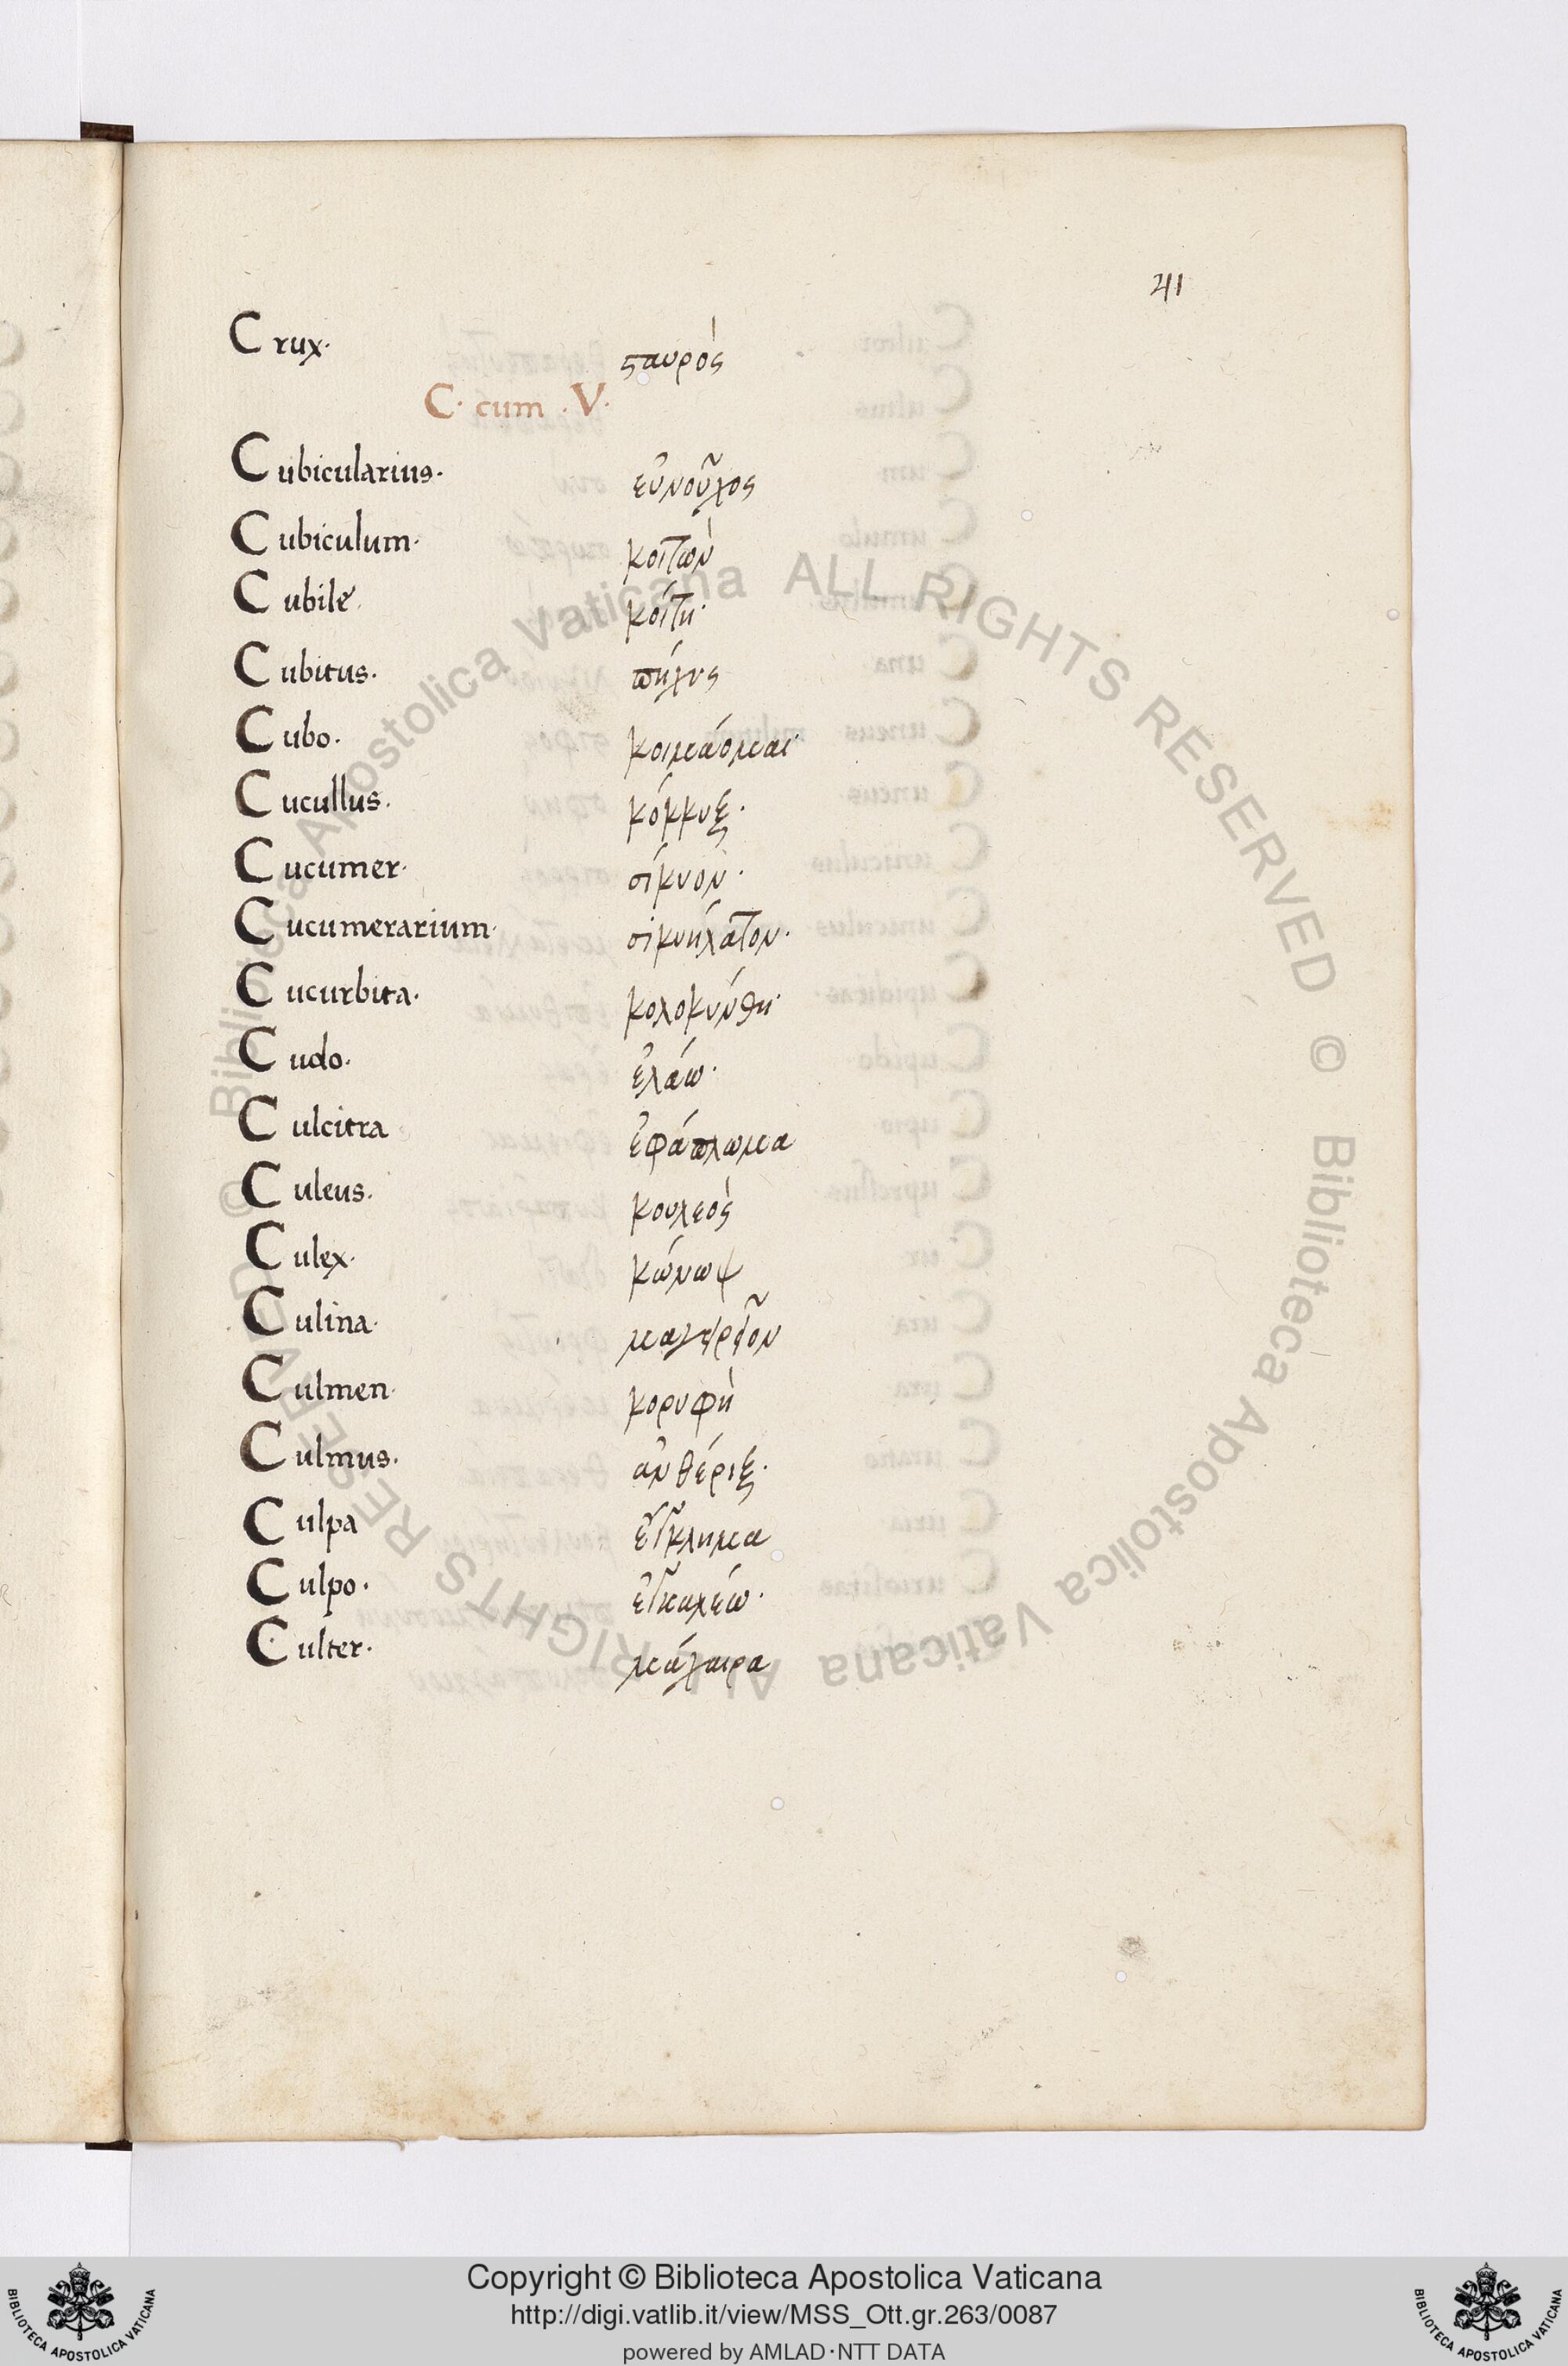 41
Crux. σταυρὸς
C. cum .V.
Cubicularius. εὐνοῦχος
Cubiculum. κοιτὼν
Cubile. κοίτη.
Cubitus. πήχυς
Cubo. κοιμάομαι.
Cucullus. κόκκυξ.
Cucumer. σίκυον.
Cucumerarium. σικυήλατον.
Cucurbita. κολοκύνθη.
Cudo. ἐλάω.
Culcitra ἐφάπλωμα
Culeus. κουλεὸς
Culex. κώνωψ
Culina. μαγειρεῖον
Culmen. κορυφὴ
Culmus. ἀνθέριξ.
Culpa ἔγκλημα
Culpo. ἐγκαλέω.
Culter. μάχαιρα
© Biblioteca Apostolica Vaticana ALL RIGHTS RESERVED © Biblioteca Apostolica Vaticana ALL RIGHTS RESERVED
Copyright © Biblioteca Apostolica Vaticana
http://digi.vatlib.it/view/MSS_Ott.gr.263/0087
powered by AMLAD·NTT DATA
BIBLIOTECA APOSTOLICA VATICANA
BIBLIOTECA APOSTOLICA VATICANA